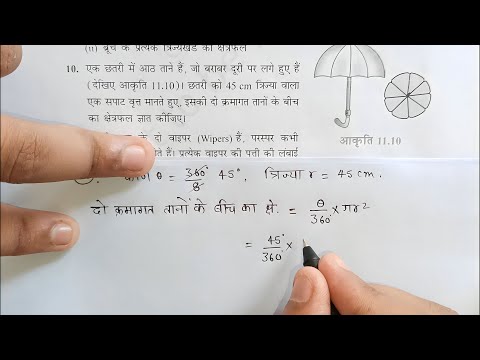 (ii) बृत्त के प्रत्येक त्रिज्यखंड का क्षेत्रफल
10. एक छतरी में आठ ताने हैं, जो बराबर दूरी पर लगे हुए हैं
(देखिए आकृति 11.10)। छतरी को 45 cm त्रिज्या वाला
एक सपाट वृत्त मानते हुए, इसकी दो क्रमागत तानों के बीच
का क्षेत्रफल ज्ञात कीजिए।
आकृति 11.10
के दो वाइपर (Wipers) हैं, परस्पर कभी
हैं। प्रत्येक वाइपर की पत्ती की लंबाई
θ = 360°/8 45°, त्रिज्या r = 45 cm.
दो क्रमागत तानों के बीच का क्षे. = θ/360° × πr²
= 45°/360° ×